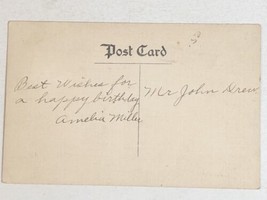 Post Card
Best Wishes for
a happy birthday
Amelia Miller
Mr John Drew